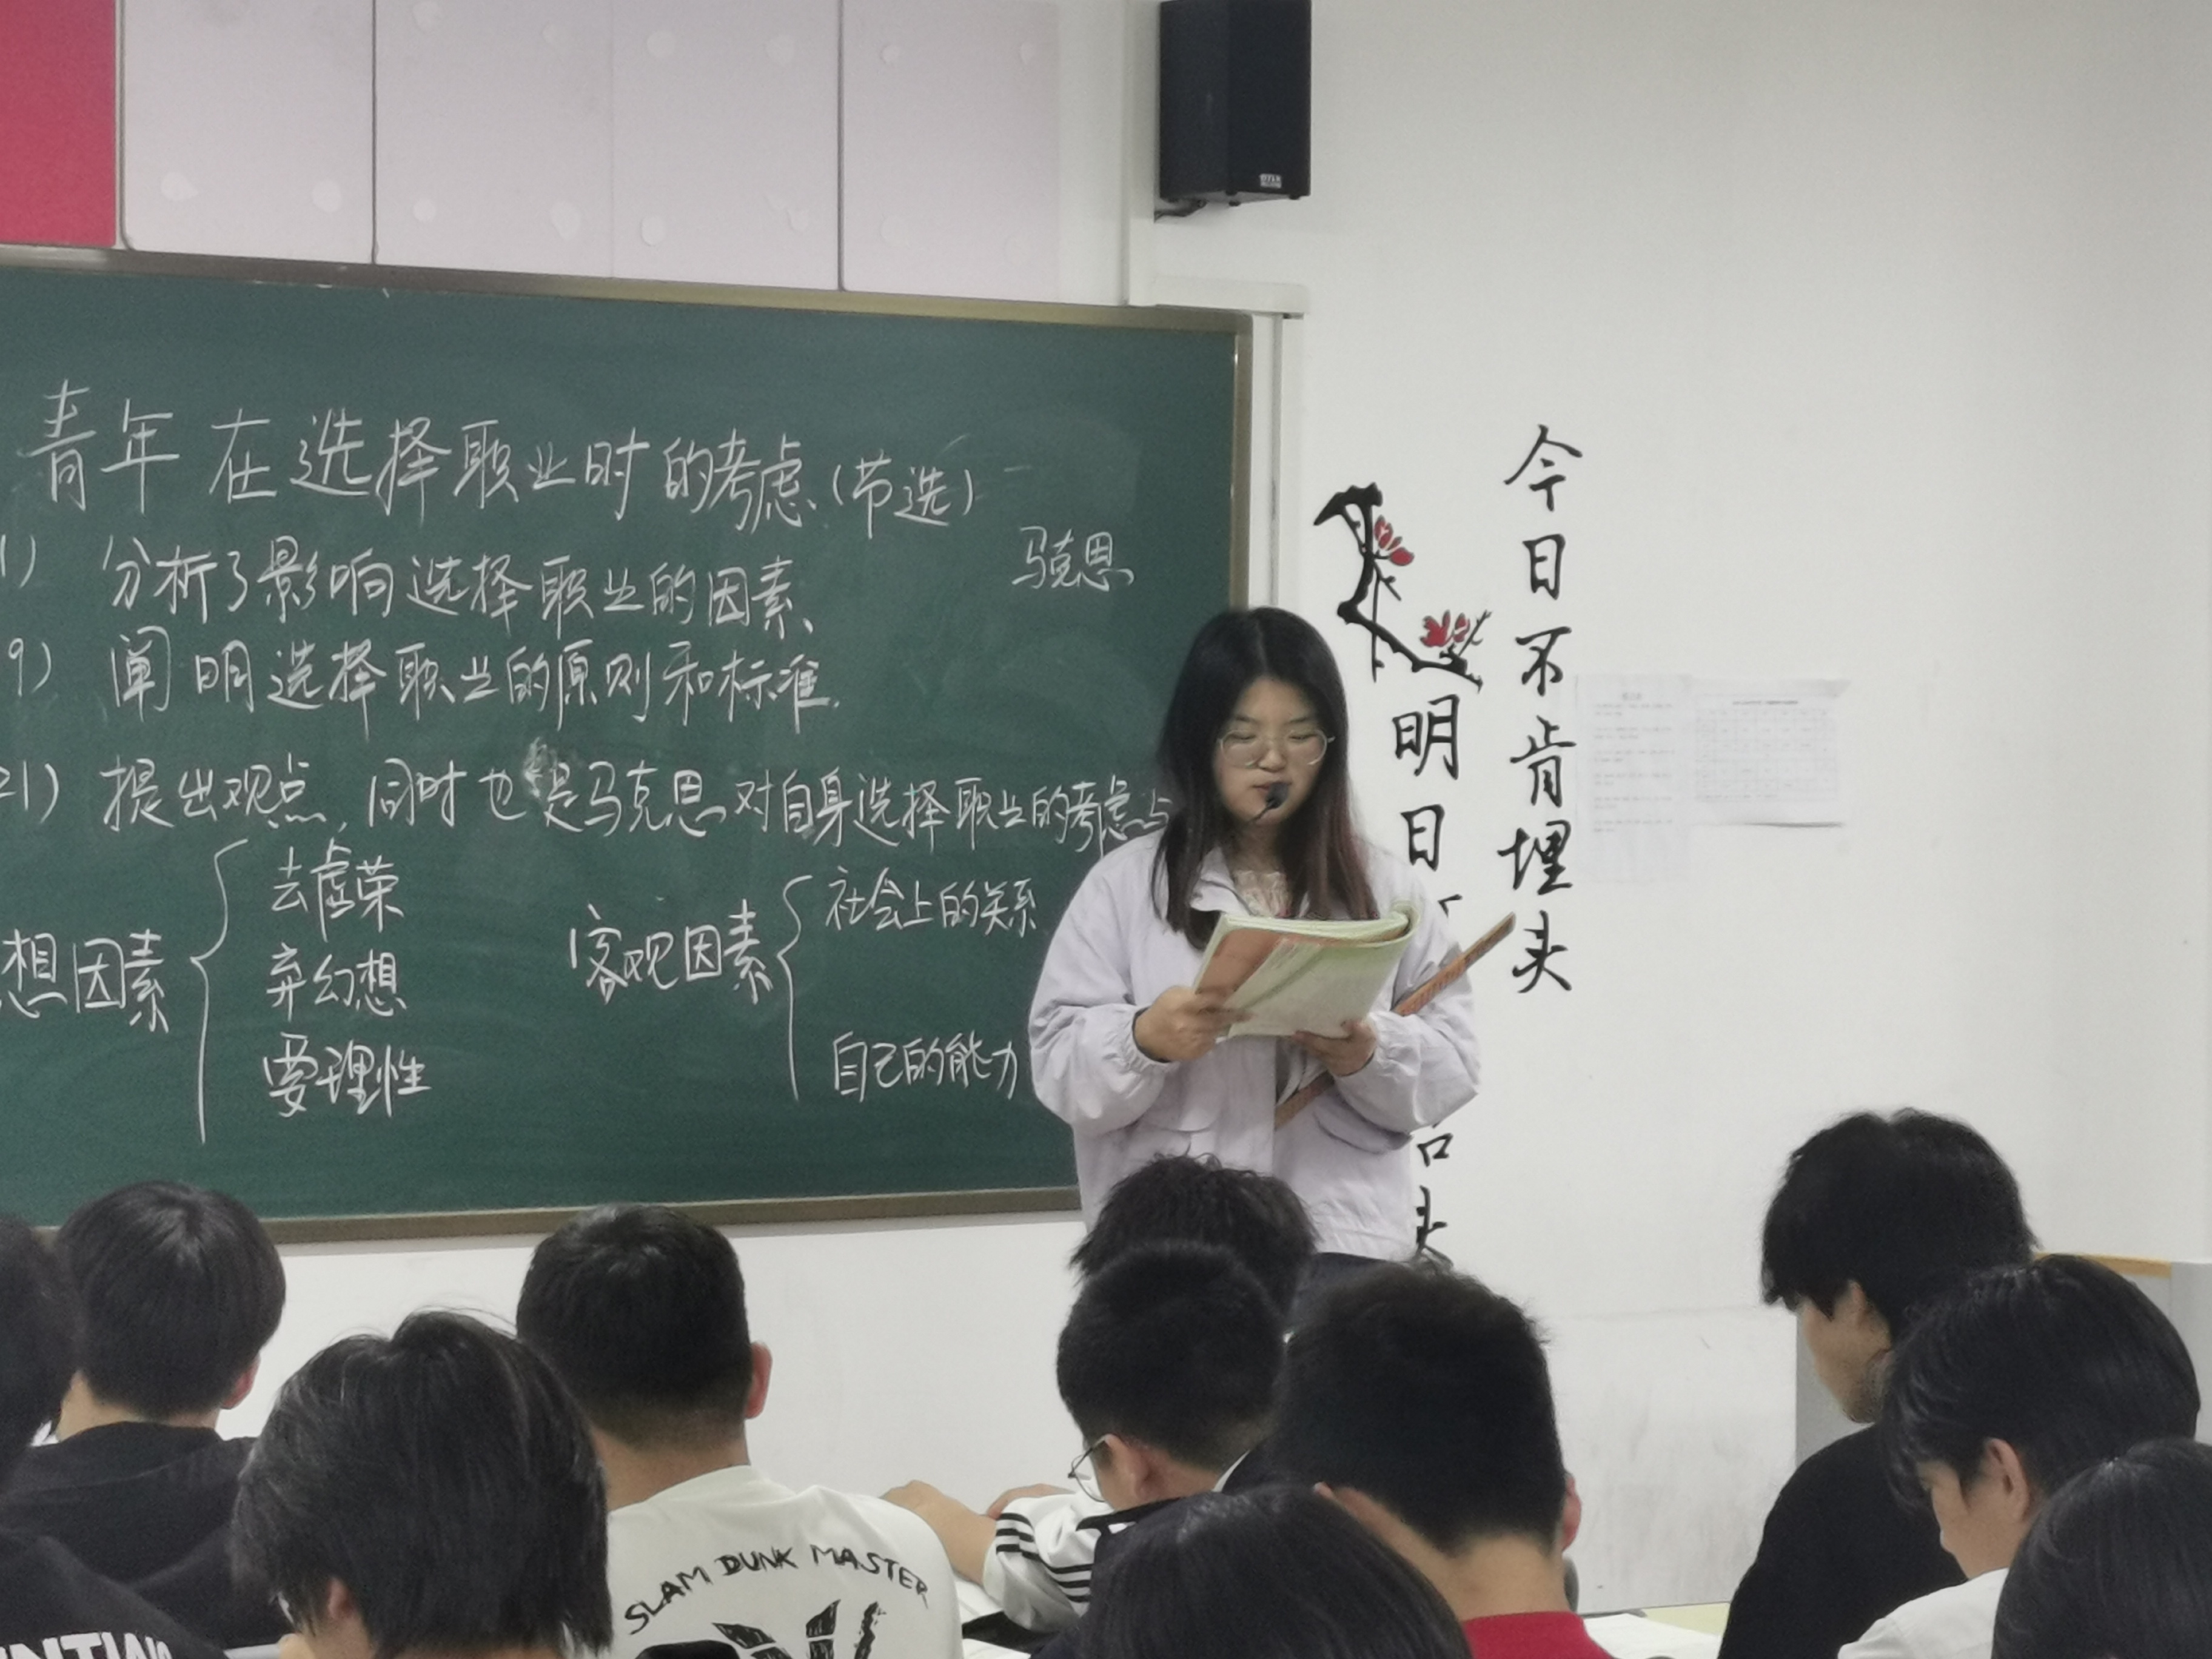 青年在选择职业时的考虑(节选)
马克思
1) 分析了影响选择职业的因素、
9) 阐明选择职业的原则和标准.
21) 提出观点,同时也是马克思对自身选择职业的考虑与
想因素
去虚荣
弃幻想
要理性
客观因素
社会上的关系
自己的能力
今日不肯埋头
明日
头
SLAM DUNK MASTER